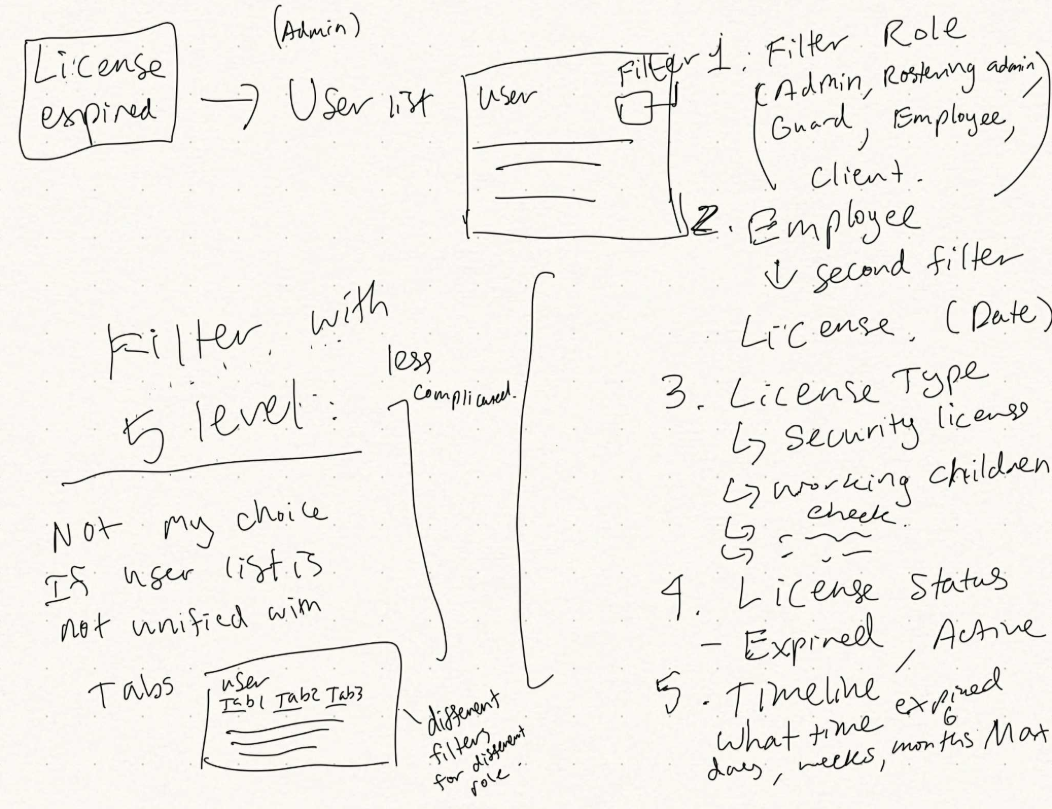 (Admin)
License
expired
User list
user
Filter
1. Filter Role
(Admin, Rostering admin,
Guard, Employee,
Client.)
2. Employee
↓ second filter
License. (Date)
3. License Type
↳ Security license
↳ working children
check.
4. License Status
- Expired, Active
5. Timeline
What time expired
days, weeks, months 6 Max
Filter with
5 level:
less
complicated.
Not my choice
If user list is
not unified with
Tabs
user
Tab1 Tab2 Tab3
different
filters
for different
role.